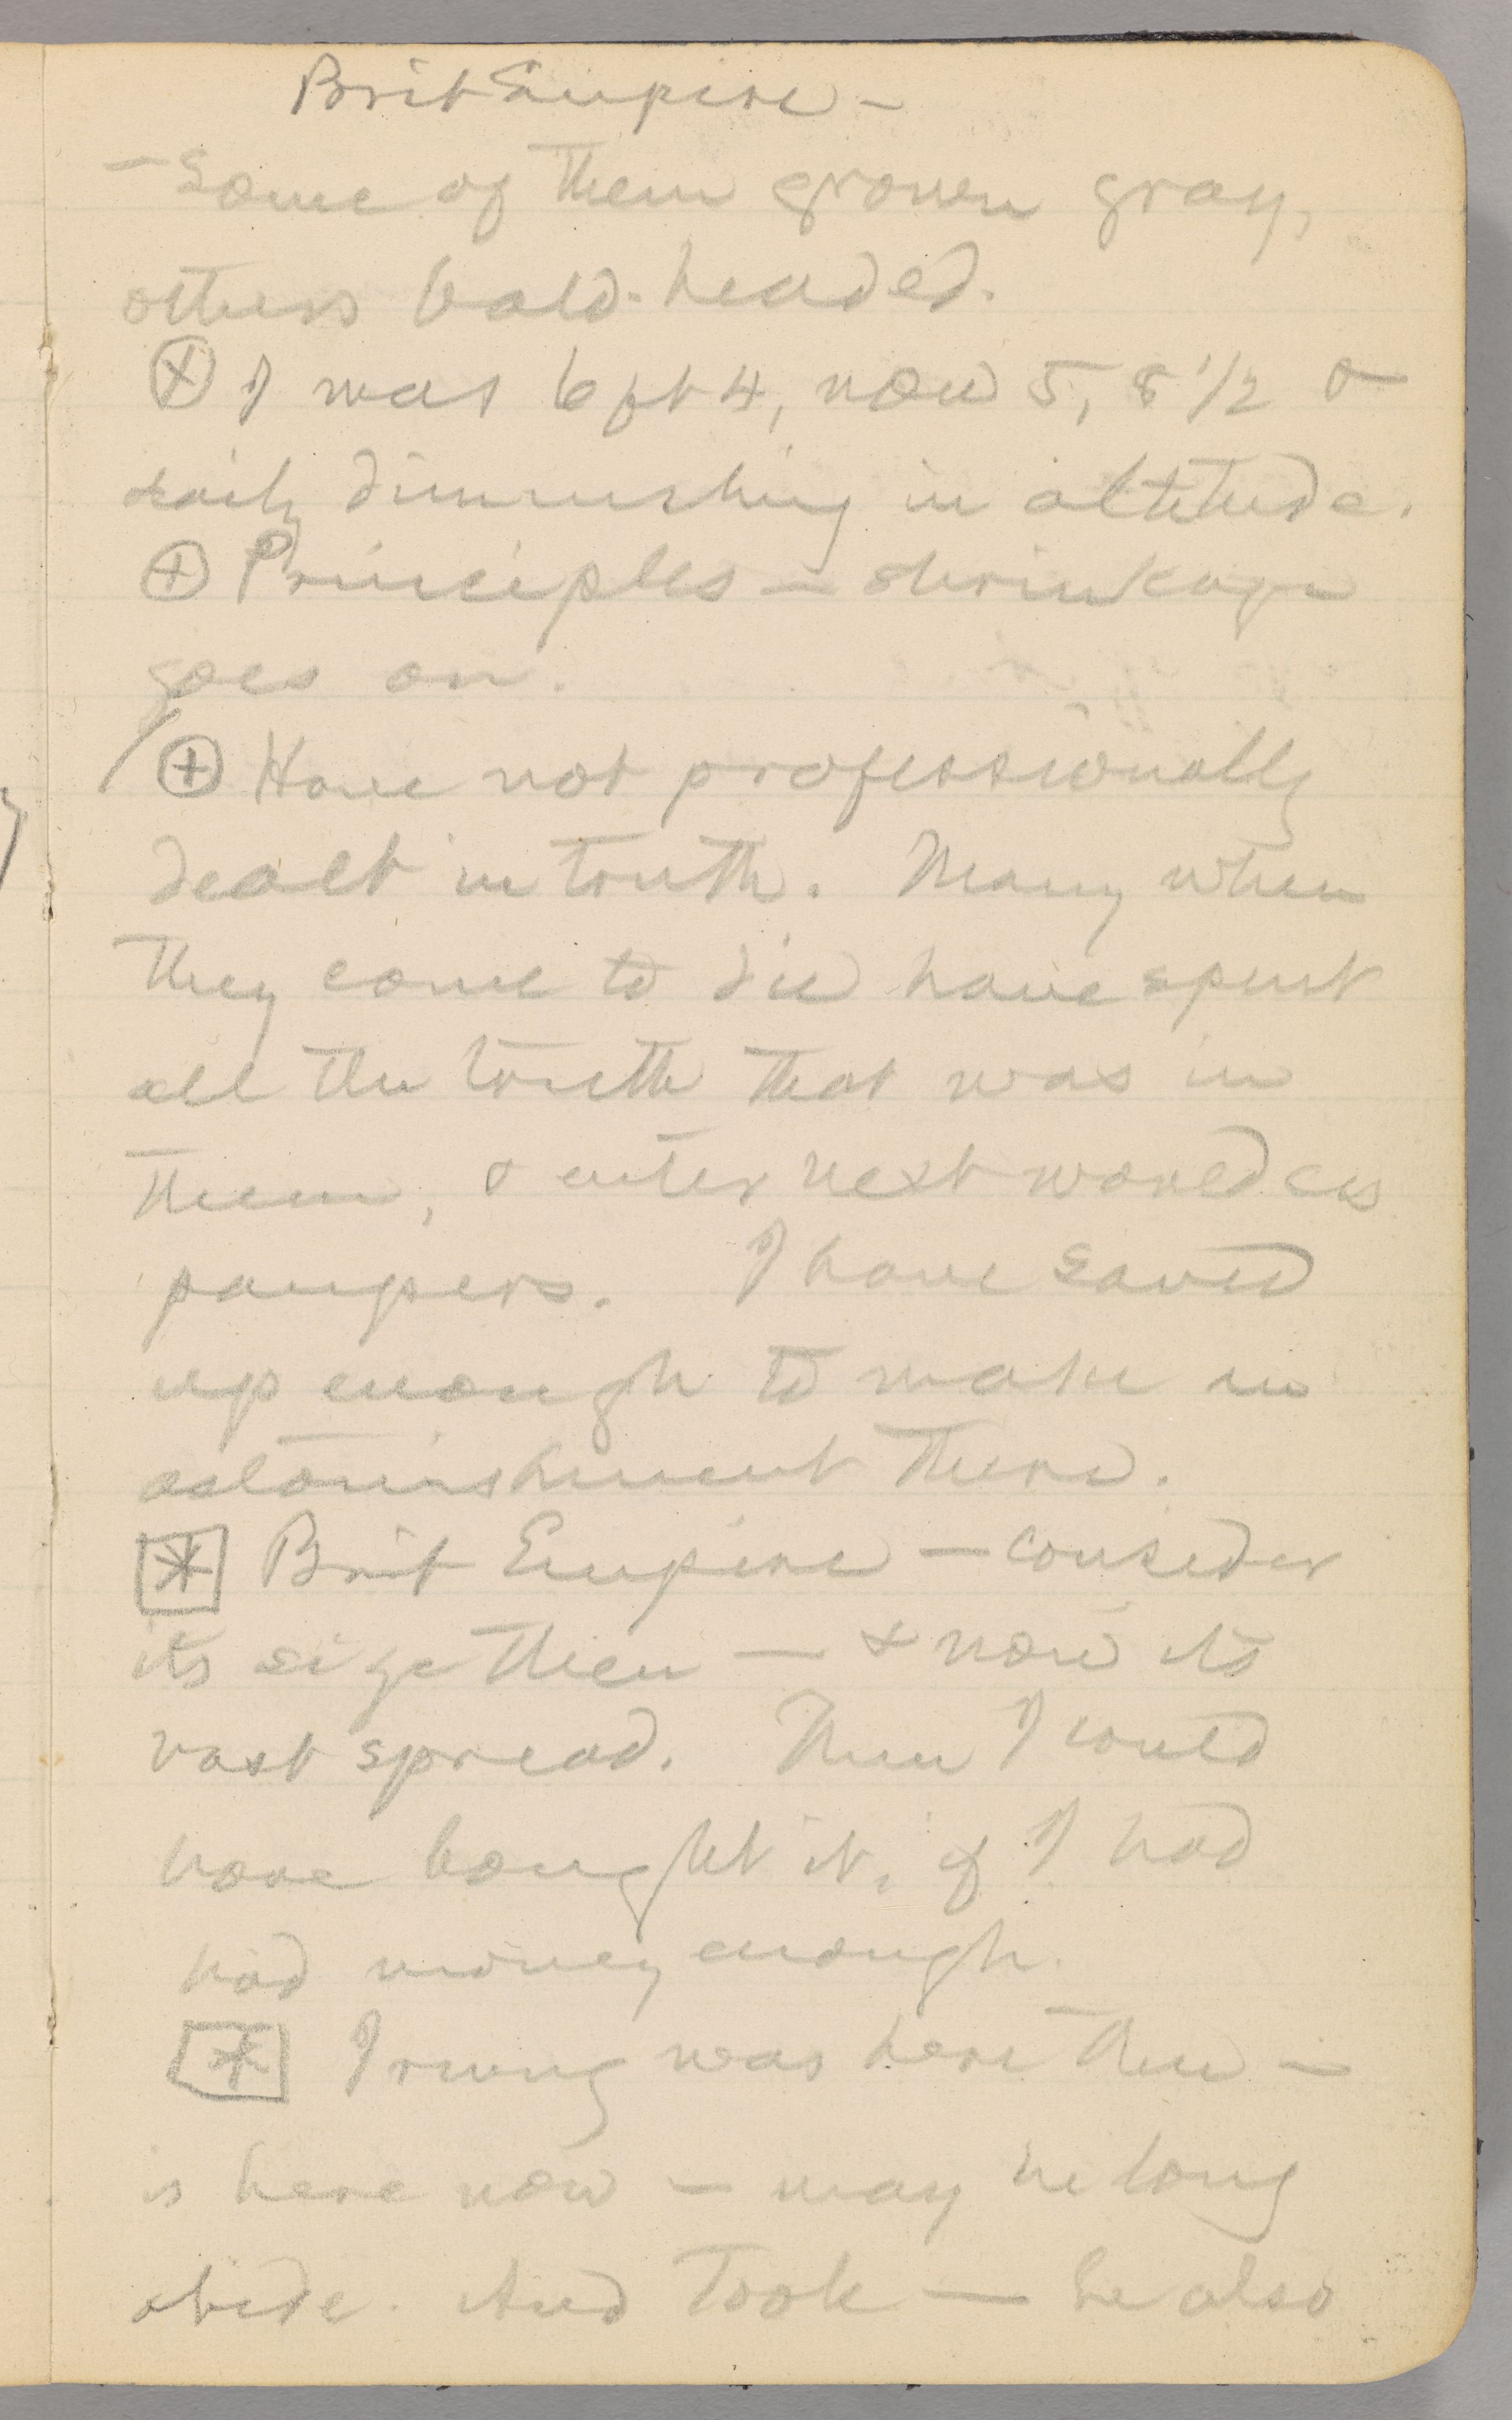 Brit Empire –
– Some of them grown gray,
others bald-headed.
⊕ I was 6 ft 4, now 5, 8 1/2 &
daily diminishing in altitude.
⊕ Principles – shrinkage
goes on.
⊕ Have not professionally
dealt in truth. Many when
they come to die have spent
all the truth that was in
them, & enter next world as
paupers. I have saved
up enough to make an
astonishment there.
* Brit Empire – consider
its size then – & now its
vast spread. Then I could
have bought it, if I had
had money enough.
* Irving was here then –
is here now – may he long
abide. And Toole – he also